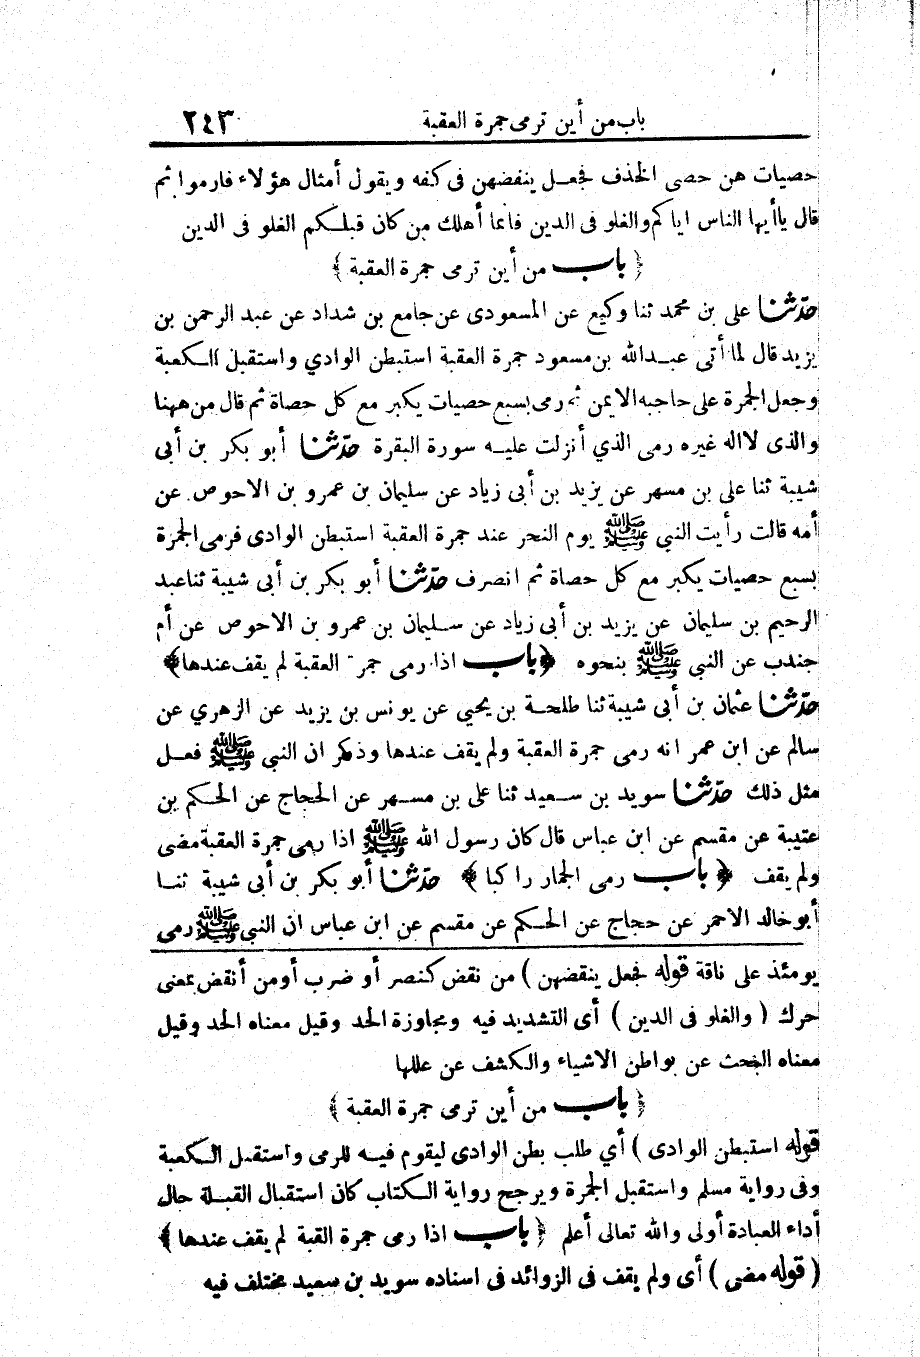 باب من أين ترمى جمرة العقبة ٢٤٣
حصيات هن حصى الخذف فجعل ينفضهن فى كفه ويقول أمثال هؤلاء فارموا ثم
قال ياأيها الناس اياكم والغلو فى الدين فانما أهلك من كان قبلكم الغلو فى الدين
﴿ باب من أين ترمى جمرة العقبة ﴾
حدّثنا على بن محمد ثنا وكيع عن المسعودى عن جامع بن شداد عن عبد الرحمن بن
يزيد قال لما أتى عبدالله بن مسعود جمرة العقبة استبطن الوادي واستقبل الكعبة
وجعل الجمرة على حاجبه الايمن ثم رمى بسبع حصيات يكبر مع كل حصاة ثم قال من ههنا
والذى لااله غيره رمى الذي أنزلت عليه سورة البقرة حدّثنا أبو بكر بن أبى
شيبة ثنا على بن مسهر عن يزيد بن أبى زياد عن سليمان بن عمرو بن الاحوص عن
أمه قالت رأيت النبى ﷺ يوم النحر عند جمرة العقبة استبطن الوادى فرمى الجمرة
بسبع حصيات يكبر مع كل حصاة ثم انصرف حدّثنا أبو بكر بن أبى شيبة ثنا عبد
الرحيم بن سليمان عن يزيد بن أبى زياد عن سليمان بن عمرو بن الاحوص عن أم
جندب عن النبى ﷺ بنحوه ﴿باب اذا رمى جمرة العقبة لم يقف عندها﴾
حدّثنا عثمان بن أبى شيبة ثنا طلحة بن يحيي عن يونس بن يزيد عن الزهري عن
سالم عن ابن عمر انه رمى جمرة العقبة ولم يقف عندها وذكر ان النبى ﷺ فعل
مثل ذلك حدّثنا سويد بن سعيد ثنا على بن مسهر عن الحجاج عن الحكم بن
عتيبة عن مقسم عن ابن عباس قال كان رسول الله ﷺ اذا رمى جمرة العقبة مضى
ولم يقف ﴿ باب رمى الجمار راكبا ﴾ حدّثنا أبو بكر بن أبى شيبة ثنا
أبو خالد الاحمر عن حجاج عن الحكم عن مقسم عن ابن عباس ان النبى ﷺ رمى
يومئذ على ناقة قوله فجعل ينقضهن ) من نقض كنصر أو ضرب أو من أنقض بمعنى
حرك ( والغلو فى الدين ) أى التشديد فيه ومجاوزة الحد وقيل معناه الحد وقيل
معناه البحث عن بواطن الاشياء والكشف عن عللها
﴿ باب من أين ترمى جمرة العقبة ﴾
قوله استبطن الوادى ) أي طلب بطن الوادى ليقوم فيه للرمى واستقبل الكعبة
وفى رواية مسلم واستقبل الجمرة ويرجح رواية الكتاب كان استقبال القبلة حال
أداء العبادة أولى والله تعالى أعلم ﴿ باب اذا رمى جمرة القبة لم يقف عندها ﴾
( قوله مضى ) أى ولم يقف فى الزوائد فى اسناده سويد بن سعيد مختلف فيه